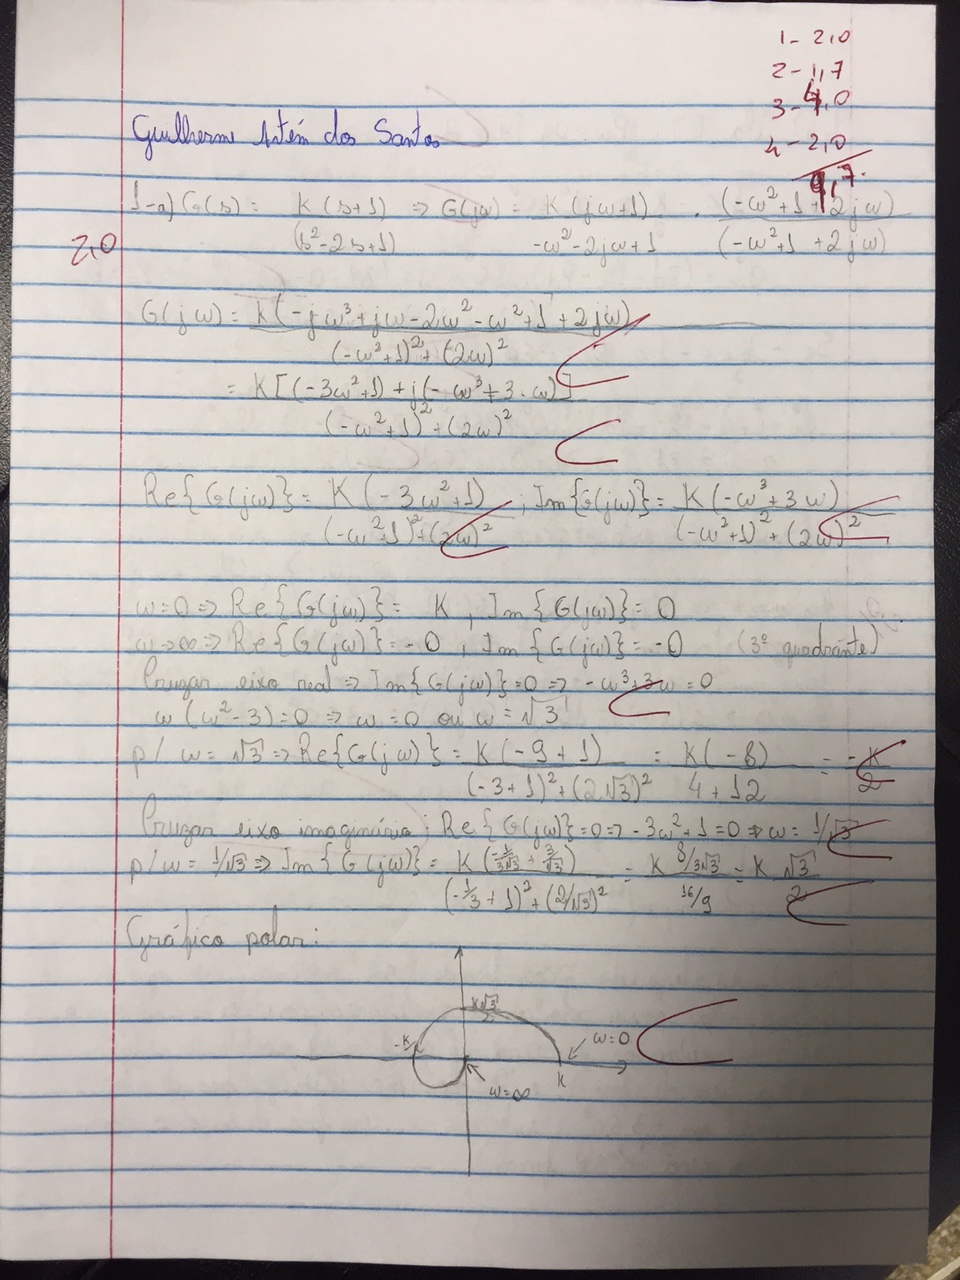 1- 2,0
2- 1,7
3- 4,0
4- 2,0
9,7.
Guilherme Artém dos Santos
1-a) G(s) = K(s+1)/(s²-2s+1) ⇒ G(jω) = K(jω+1)/(-ω²-2jω+1) · (-ω²+1+2jω)/(-ω²+1+2jω)
2,0
G(jω) = K(-jω³+jω-2ω²-ω²+1+2jω)/((-ω²+1)²+(2ω)²)
= K[(-3ω²+1)+j(-ω³+3·ω)]/((-ω²+1)²+(2ω)²)
Re{G(jω)} = K(-3ω²+1)/((-ω²+1)²+(2ω)²) ; Im{G(jω)} = K(-ω³+3ω)/((-ω²+1)²+(2ω)²)
ω=0 ⇒ Re{G(jω)} = K, Im{G(jω)} = 0
ω→∞ ⇒ Re{G(jω)} = -0, Im{G(jω)} = -0 (3º quadrante)
Cruzar eixo real ⇒ Im{G(jω)}=0 ⇒ -ω³+3ω = 0
ω(ω²-3)=0 ⇒ ω=0 ou ω=√3
p/ ω=√3 ⇒ Re{G(jω)} = K(-9+1)/((-3+1)²+(2√3)²) = K(-8)/(4+12) = -K/2
Cruzar eixo imaginário: Re{G(jω)}=0 ⇒ -3ω²+1=0 ⇒ ω=1/√3
p/ ω=1/√3 ⇒ Im{G(jω)} = K(-1/3√3 + 3/√3)/((-1/3+1)²+(2/√3)²) = K 8/3√3/16/9 = K √3/2
Gráfico polar:
K√3/2
-K/2
ω=0
K
ω=∞